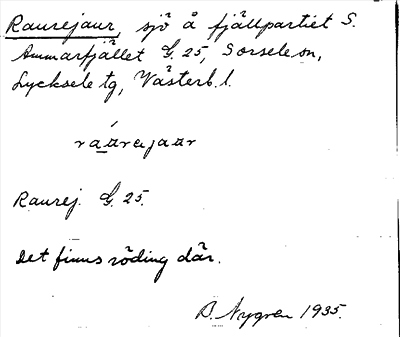 Raurejaur, sjö å fjällpartiet S.
Ammarfjället G. 25, Sorsele sn,
Lycksele tg, Västerb. l.
raarejaar
Raurej. G. 25.
Det finns röding där.
B. Nygren 1935.